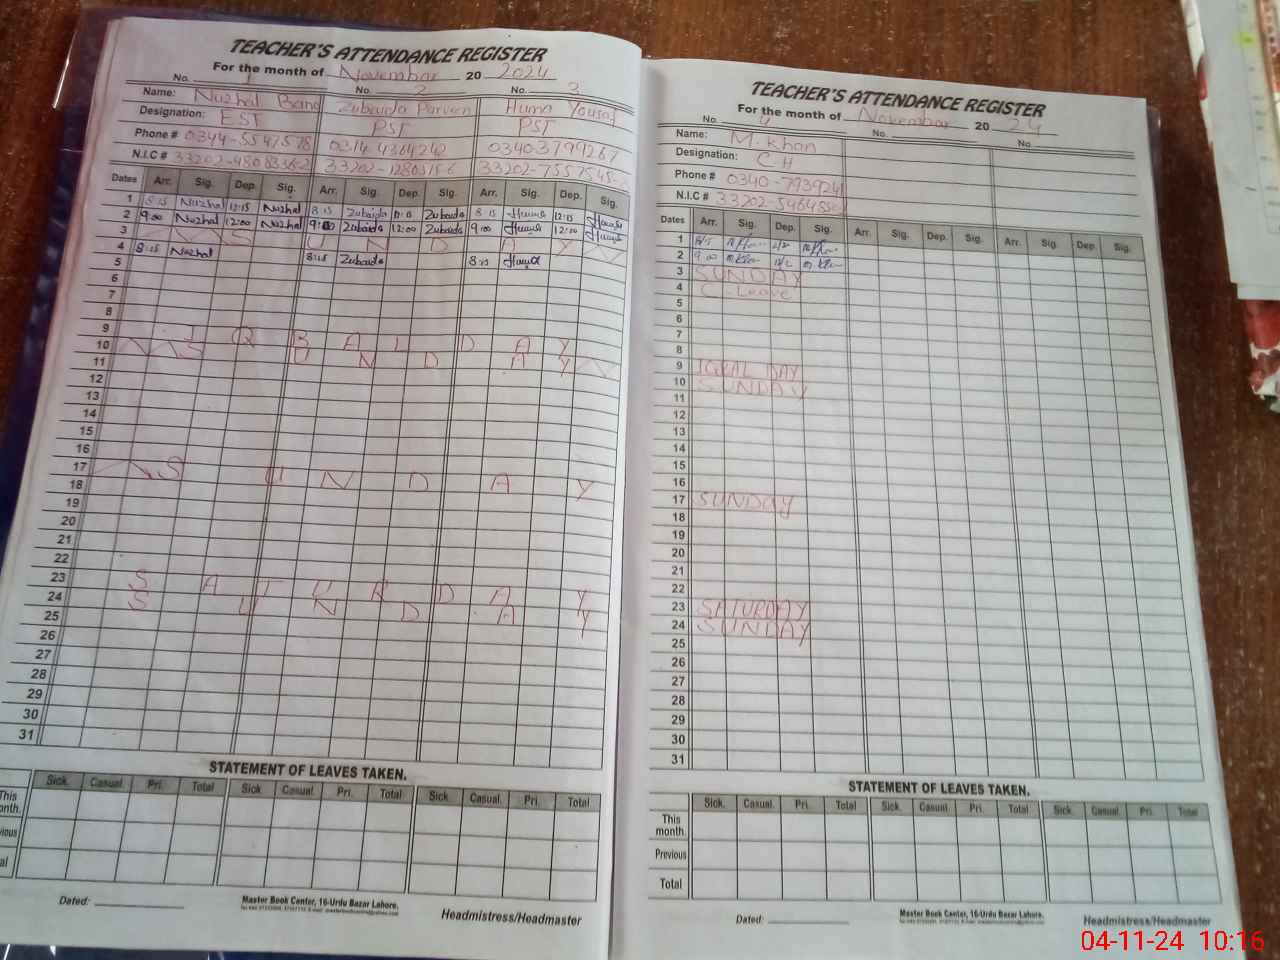 TEACHER'S ATTENDANCE REGISTER
For the month of November 20 2024
No. 1 No. 2 No. 3
Name: Nuzhat Bano Zubaida Parveen Huma Yousaf
Designation: EST PST PST
Phone # 0344-5547578 0314 4364242 03403799267
N.I.C # 33202-
Dates Arr. Sig. Dep. Sig. Arr. Sig. Dep. Sig. Arr. Sig. Dep. Sig.
1 8:15 Nuzhat 12:15 Nuzhat 8:15 Zubaida 12:15 Zubaida 8:15 Huma 12:15 Huma
2 9:00 Nuzhat 12:00 Nuzhat 9:00 Zubaida 12:00 Zubaida 9:00 Huma 12:00 Huma
3 S U N D A Y
4 8:15 Nuzhat 8:15 Zubaida 8:15 Huma
5
6
7
8
9 I Q B A L D A Y
10 S U N D A Y
11
12
13
14
15
16
17 S U N D A Y
18
19
20
21
22
23 S A T U R D A Y
24 S U N D A Y
25
26
27
28
29
30
31
STATEMENT OF LEAVES TAKEN.
Sick. Casual. Pri. Total Sick. Casual. Pri. Total Sick. Casual. Pri. Total
This
onth.
vious
al
Dated:
Master Book Center, 16-Urdu Bazar Lahore.
Headmistress/Headmaster
TEACHER'S ATTENDANCE REGISTER
For the month of November 20 24
No. 4 No. No.
Name: M. Khan
Designation: C H
Phone # 0340-7939241
N.I.C # 33202-
Dates Arr. Sig. Dep. Sig. Arr. Sig. Dep. Sig. Arr. Sig. Dep. Sig.
1 8/15 M Khan M Khan
2 9:00 M Khan 12/2 M Khan
3 SUNDAY
4 C-Leave
5
6
7
8
9 IQBAL DAY
10 SUNDAY
11
12
13
14
15
16
17 SUNDAY
18
19
20
21
22
23 SATURDAY
24 SUNDAY
25
26
27
28
29
30
31
STATEMENT OF LEAVES TAKEN.
Sick. Casual. Pri. Total Sick. Casual. Pri. Total Sick. Casual. Pri. Total
This
month.
Previous
Total
Dated:
Master Book Center, 16-Urdu Bazar Lahore.
Headmistress/Headmaster
04-11-24 10:16